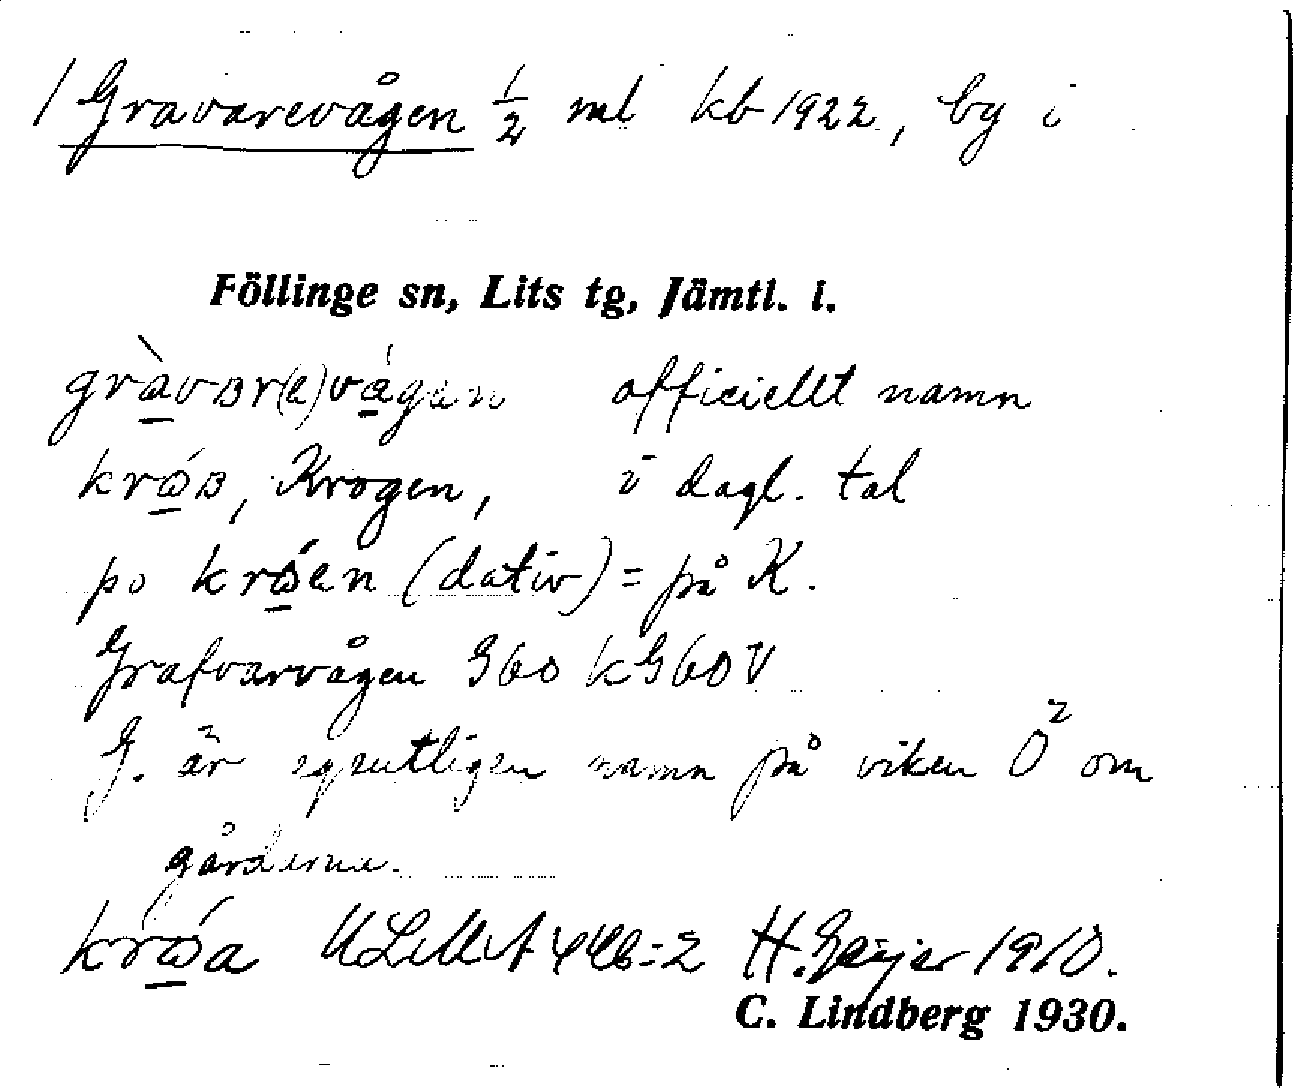 1 Gravarevågen 1/2 ml kb 1922, by i
Föllinge sn, Lits tg, Jämtl. l.
gràvʙr(e)vágen officiellt namn
krǿʙ, Krogen, i dagl. tal
po krǿen (dativ) = på K.
Grafvarvågen G60 kG60V
G. är egentligen namn på viken O² om
gårderne.
ULMA 446:2 H. Geijer 1910.
C. Lindberg 1930.